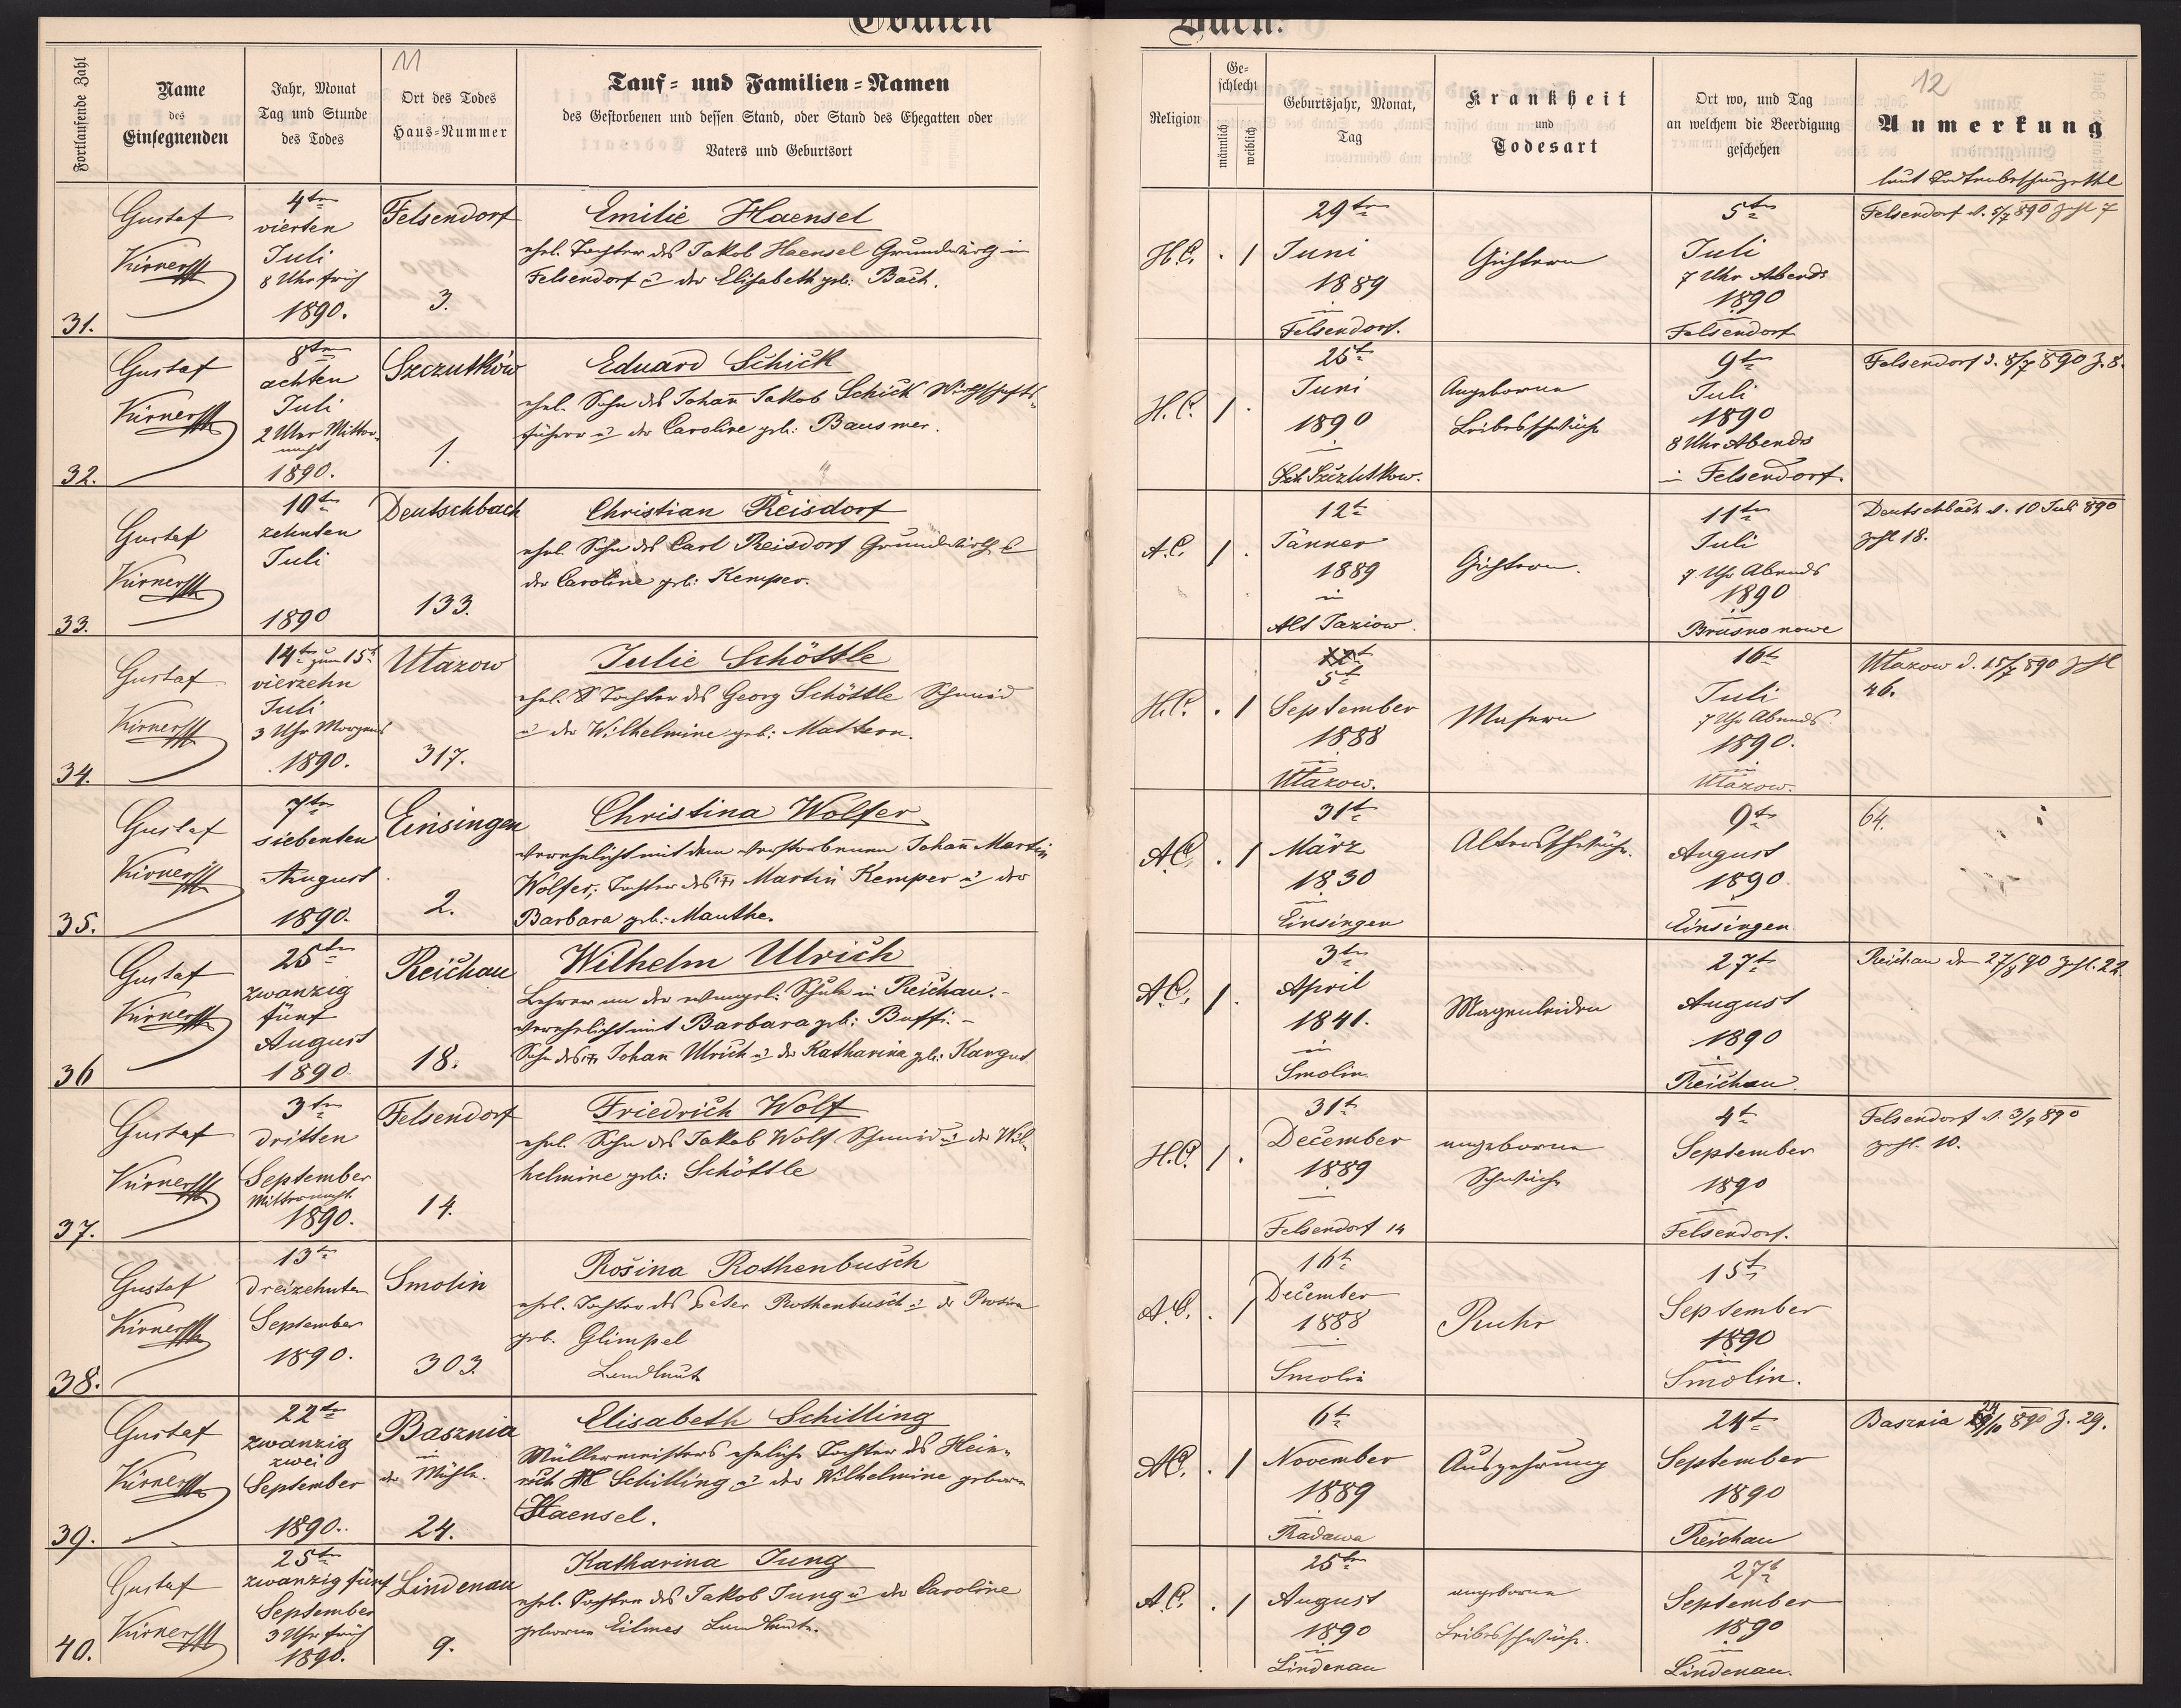 Buch.
Fortlaufende Zahl
Name
des
Einsegnenden
Jahr, Monat
Tag und Stunde
des Todes
11
Ort des Todes
Haus-Nummer
Tauf- und Familien-Namen
des Gestorbenen und dessen Stand, oder Stand des Ehegatten oder
Vaters und Geburtsort
Religion
Ge-
schlecht
männlich
weiblich
Geburtsjahr, Monat,
Tag
Krankheit
und
Todesart
Ort wo, und Tag
an welchem die Beerdigung
geschehen
12
Anmerkung
31.
Gustaf
4ten
vierten
Juli
8 Uhr früh
1890.
Felsendorf
3.
Emilie Haensel
ehel. Tochter des Jakob Haensel Grundwirth in
Felsendorf u der Elisabeth geb: Bach.
H.C.
. 1
29ten
Juni
1889
in
Felsendorf.
5ten
Juli
7 Uhr Abends
1890
in
Felsendorf
Felsendorf d. 5/7 890 Zahl 7
32.
Gustaf
8ten
achten
Juli
2 Uhr Mitter-
nacht
1890.
Szczutków
1.
Eduard Schick
ehel. Sohn des Johan̄ Jakob Schick Wirthschafts-
führer u der Caroline geb: Bausmer.
H.C.
1 .
25t
Juni
1890
in
Szczutkow.
Angeborene
Leibesschwäche
9ten
Juli
1890
8 Uhr Abends
in Felsendorf.
Felsendorf d. 8/7 890 Z. 8.
33.
Gustaf
10t
zehnten
Juli
1890
Deutschbach
133.
Christian Reisdorf
ehel. Sohn des Carl Reisdorf Grundwirth &
der Caroline geb: Kemper.
A.C.
1 .
12t
Jänner
1889
in
Alt Jaziow.
11ten
Juli
7 Uhr Abends
1890
in
Brusno nowe
Deutschbach d. 10 Juli 890
Zahl 18.
34.
Gustaf
14ten zum 15t
vierzehn
Juli
3 Uhr Morgens
1890.
Utazow
317.
Julie Schöttle
ehel. Tochter des Georg Schöttle Schmied
u der Wilhelmine geb: Mattern.
H.C.
. 1
5t
September
1888
in
Utazow.
Masern
16t
Juli
7 Uhr Abends
1890.
in
Utazow.
Utazow d. 15/7 890 Zahl
46.
35.
Gustaf
7ten
siebenten
August
1890.
Einsingen
2.
Christina Wolfer
verehelicht mit dem verstorbenen Johan̄ Martin
Wolfer; Tochter des Martin Kemper u der
Barbara geb: Mauthe.
A.C.
. 1
31t
März
1830
in
Einsingen
Altersschwäche.
9ten
August
1890
in
Einsingen
64.
36
Gustaf
25ten
zwanzig
fünf
August
1890
Reichau
18.
Wilhelm Ulrich
Lehrer an der evangel: Schule in Reichau.-
verehelicht mit Barbara geb: Buffi.-
Sohn des Johan̄ Ulrich u der Katharina geb: Kangut
A.C.
1 .
3ten
April
1841.
in
Smolin
Magenleiden
27t
August
1890
in
Reichau.
Reichau den 27/8 90 Zahl. 22.
37.
Gustaf
3ten
dritten
September
Mitternacht
1890.
Felsendorf
14.
Friedrich Wolf
ehel. Sohn des Jakob Wolf Schmied u der Wil-
helmine geb: Schöttle
H.C.
1 .
31t
December
1889
in
Felsendorf 14
angeborene
Schwäche
4t
September
1890
in
Felsendorf.
Felsendorf d. 3/9 890
Zahl. 10.
38.
Gustaf
13ten
dreizehnten
September
1890.
Smolin
303
Rosina Rothenbusch
ehel. Tochter des Peter Rothenbusch u der Rosina
geb. Glimpel
Landleute
A.C.
. 1
16t
December
1888
in
Smolin
Ruhr
15t
September
1890
in
Smolin.
39.
Gustaf
22ten
zwanzig
zwei
September
1890.
Basznia
in
der Mühle.
24.
Elisabeth Schilling
Müllermeisters eheliche Tochter des Hein-
rich Schilling u der Wilhelmine geborne
Haensel.
A.C.
. 1
6t
November
1889
in
Radawa
Auszehrung
24t
September
1890
in
Reichau
Basznia 890 Z. 29.
40.
Gustaf
25ten
zwanzig fünf
September
3 Uhr früh
1890.
Lindenau
9.
Katharina Jung
ehel. Tochter des Jakob Jung u der Caroline
geborene Eilmes Landleute.
A.C.
. 1
25ten
August
1890
in
Lindenau
angeborene
Leibesschwäche.
27t
September
1890
in
Lindenau.